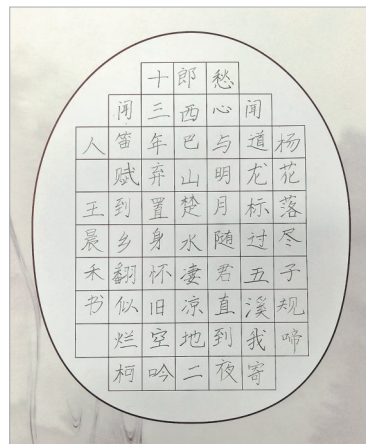 杨花落尽子规啼
闻道龙标过五溪我寄
愁心与明月随君直到夜
郎西巴山楚水凄凉地二
十三年弃置身怀旧空吟
闻笛赋到乡翻似烂柯
人 王晨禾书